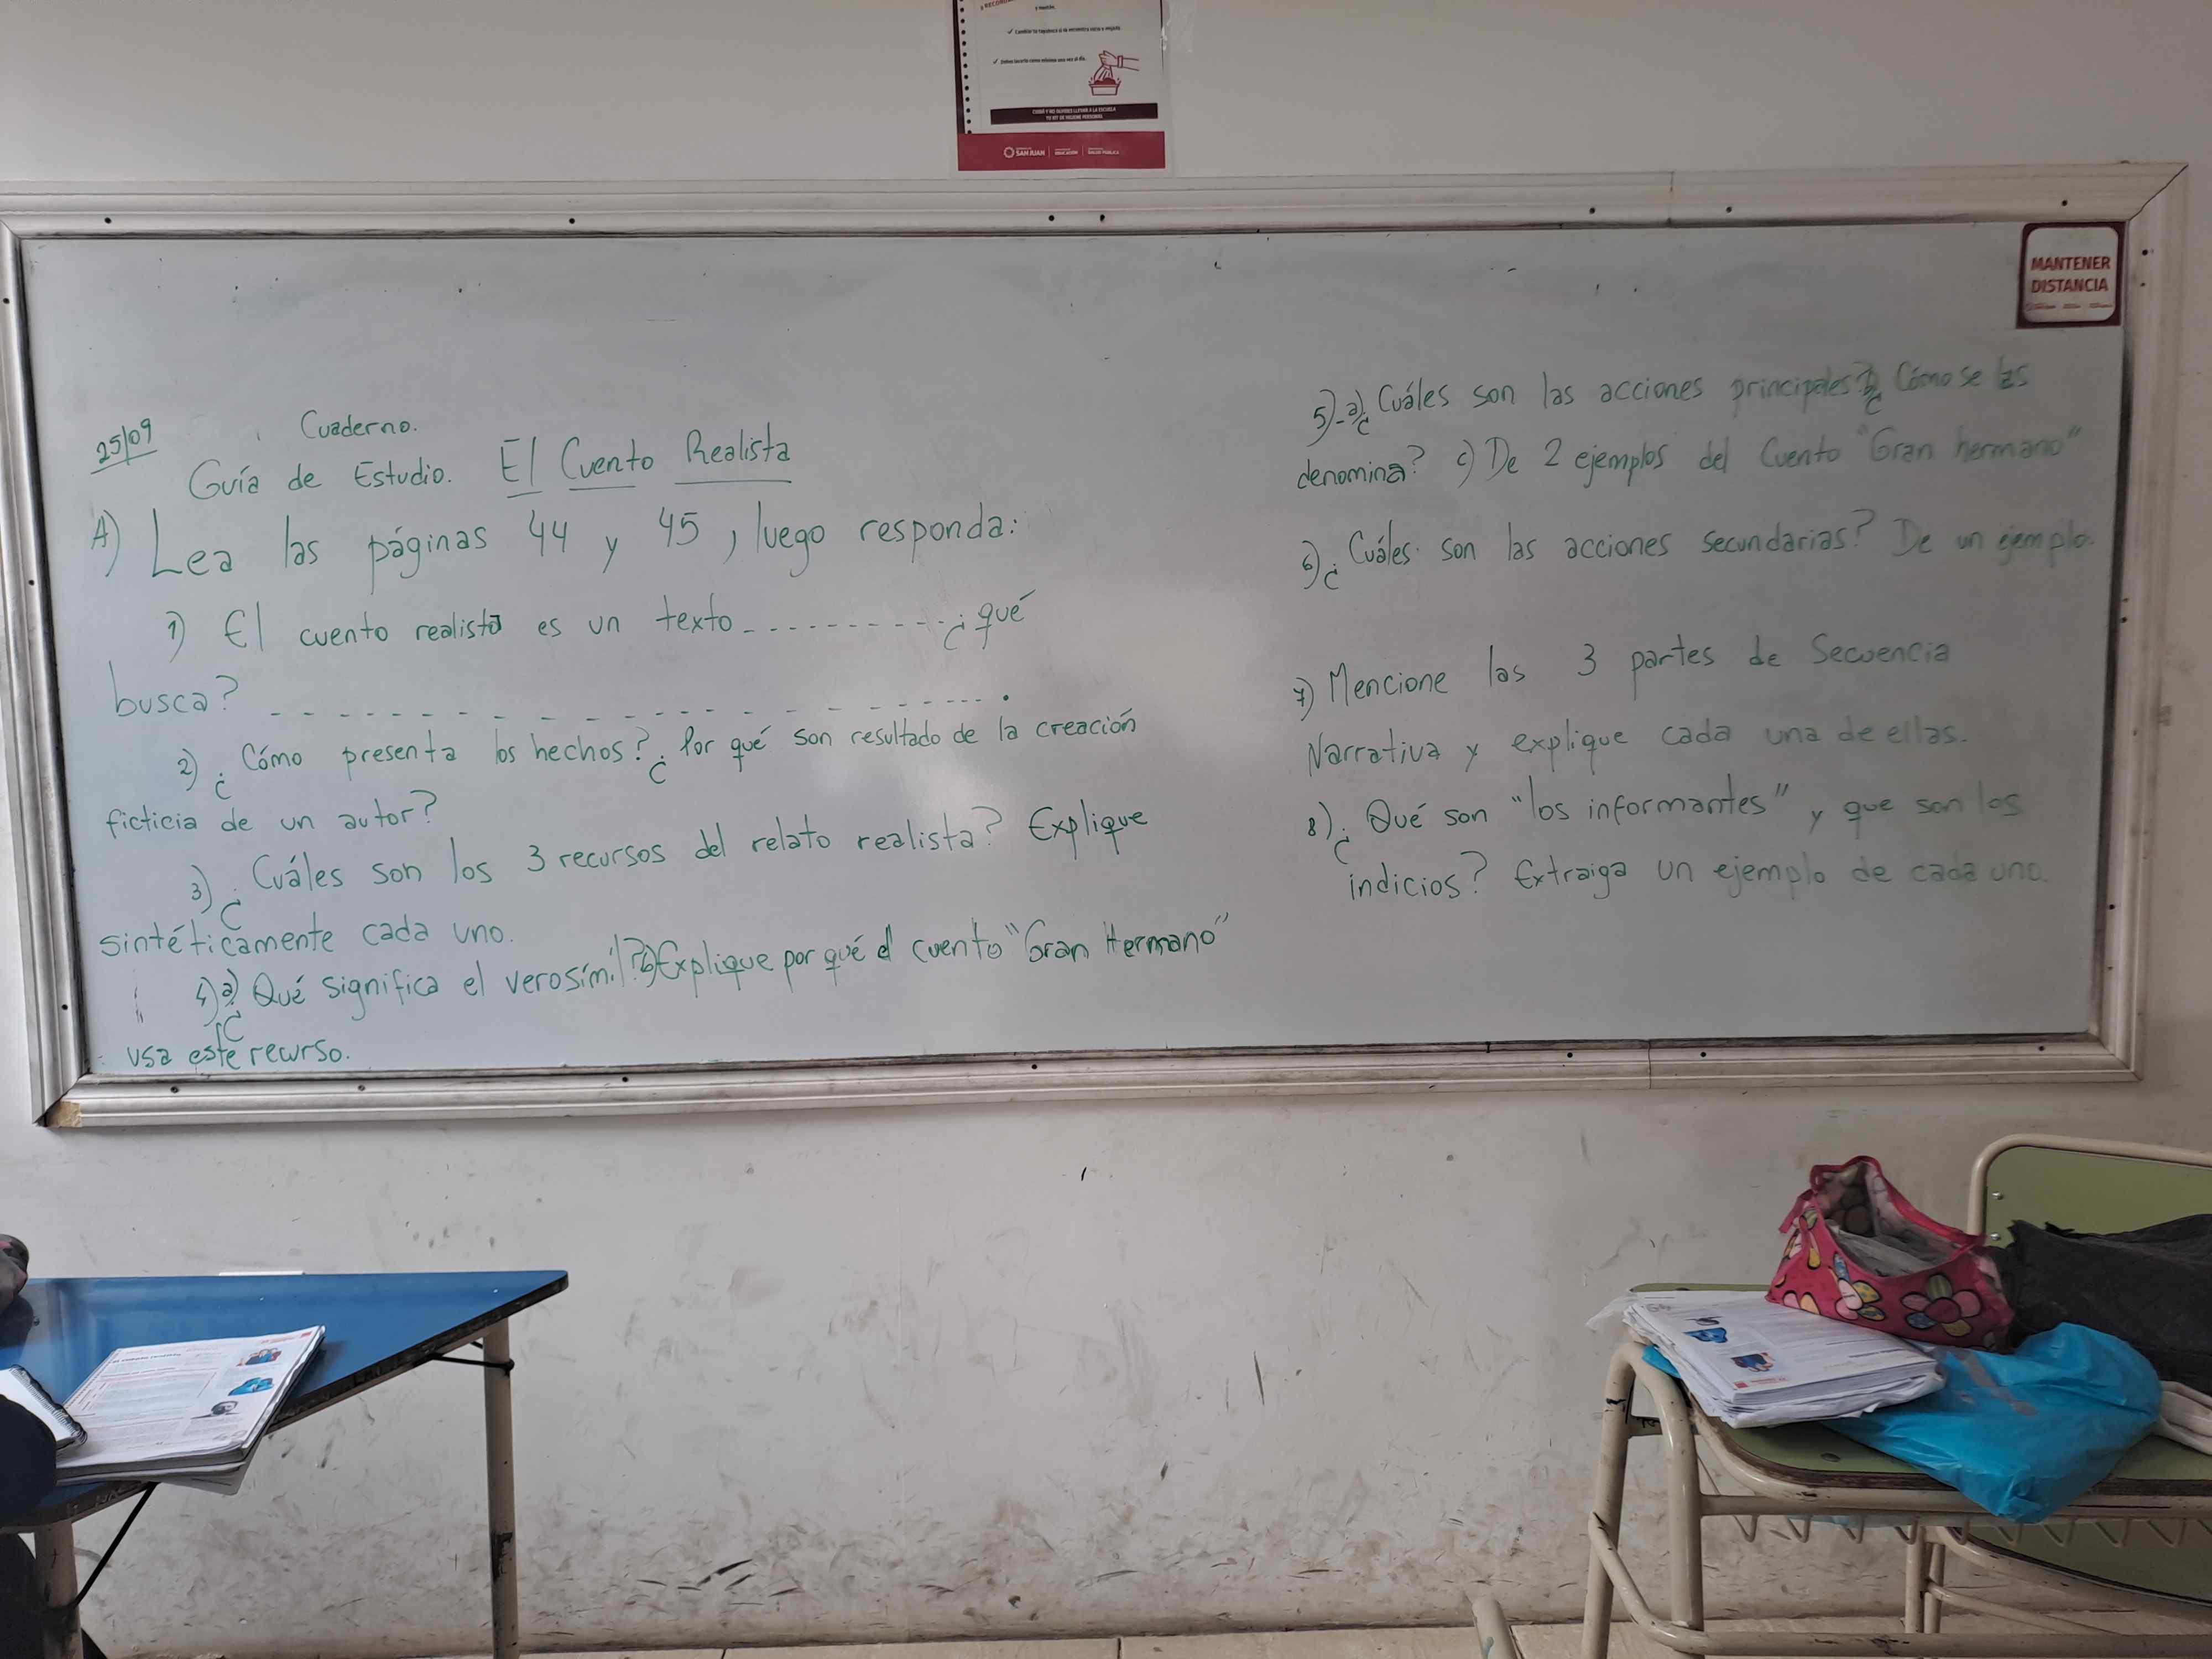 y media.
✓ Cambiar tu tapaboca si se encuentra sucio o mojado.
✓ Debes lavarlo como mínimo una vez al día.
TU KIT DE HIGIENE PERSONAL
SAN JUAN
EDUCACIÓN
SALUD PÚBLICA
MANTENER
DISTANCIA
25/09
Cuaderno.
Guía de Estudio. El Cuento Realista
A) Lea las páginas 44 y 45, luego responda:
1) El cuento realista es un texto - - - - - - - - - - ¿qué
busca? - - - - - - - - - - - - - - - - - - - - - - .
2) ¿Cómo presenta los hechos? ¿Por qué son resultado de la creación
ficticia de un autor?
3) ¿Cuáles son los 3 recursos del relato realista? Explique
sintéticamente cada uno.
4) a) ¿Qué significa el verosímil? b) Explique por qué el cuento "Gran Hermano"
usa este recurso.
5)-a) ¿Cuáles son las acciones principales? b) ¿Cómo se las
denomina? c) De 2 ejemplos del Cuento "Gran hermano"
6) ¿Cuáles son las acciones secundarias? De un ejemplo.
7) Mencione las 3 partes de Secuencia
Narrativa y explique cada una de ellas.
8) ¿Qué son "los informantes" y que son los
indicios? Extraiga un ejemplo de cada uno.